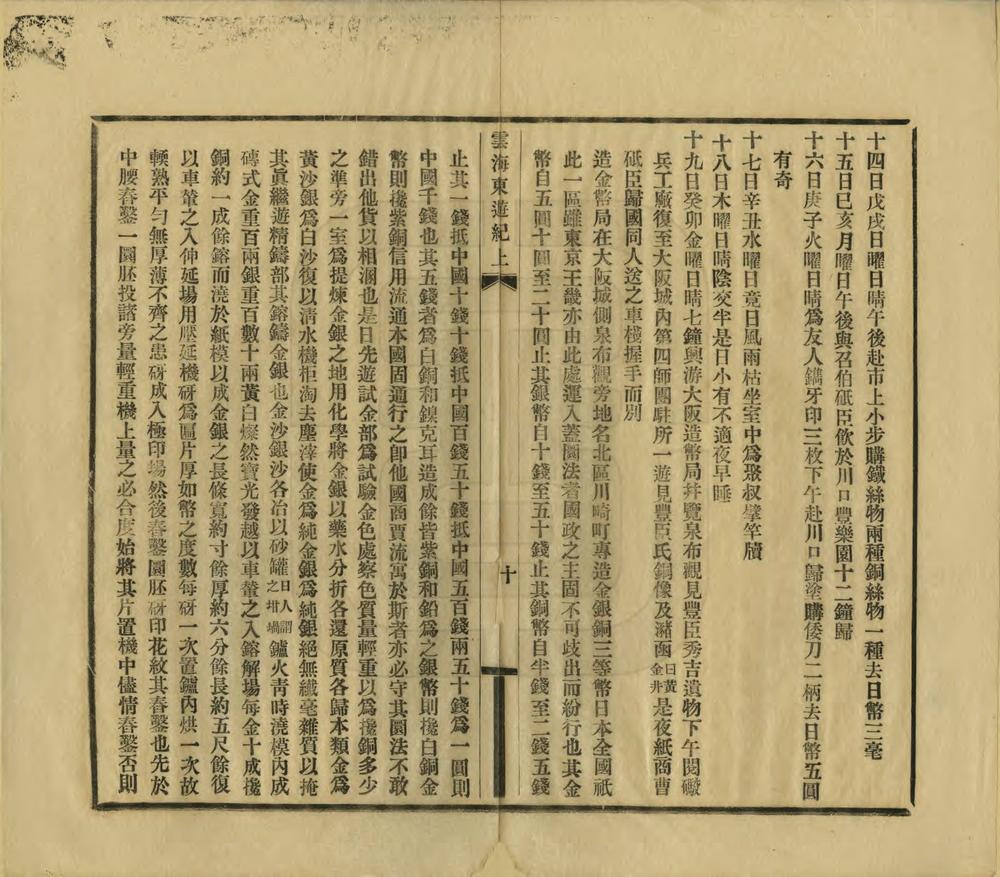 十四日戊戌日曜日晴午後赴市上小步購鐵絲物兩種銅絲物一種去日幣三毫
十五日巳亥月曜日午後與召伯砥臣飲於川口豐樂園十二鐘歸
十六日庚子火曜日晴爲友人鐫牙印三枚下午赴川口歸塗購倭刀二柄去日幣五圓
有奇
十七日辛丑水曜日竟日風雨枯坐室中爲聚叔擘竿牘
十八日木曜日晴陰交半是日小有不適夜早睡
十九日癸卯金曜日晴七鐘興游大阪造幣局幷覽泉布觀見豐臣秀吉遺物下午閱礮
兵工廠復至大阪城內第四師團駐所一遊見豐臣氏銅像及瀦函曰黃金井是夜紙商曹
砥臣歸國同人送之車棧握手而別
造金幣局在大阪城側泉布觀旁地名北區川崎町專造金銀銅三等幣日本全國祇
此一區雖東京王畿亦由此處運入蓋圜法者國政之主固不可歧出而紛行也其金
幣自五圓十圓至二十圓止其銀幣自十錢至五十錢止其銅幣自半錢至二錢五錢
雲海東遊紀 上
十
止其一錢抵中國十錢十錢抵中國百錢五十錢抵中國五百錢兩五十錢爲一圓則
中國千錢也其五錢者爲白銅和鎳克耳造成餘皆紫銅和鉛爲之銀幣則攙白銅金
幣則攙紫銅信用流通本國固通行之卽他國商賈流寓於斯者亦必守其圜法不敢
錯出他貨以相溷也是日先遊試金部爲試驗金色處察色質量輕重以爲攙銅多少
之準旁一室爲提煉金銀之地用化學將金銀以藥水分折各還原質各歸本類金爲
黃沙銀爲白沙復以清水機柜淘去塵滓使金爲純金銀爲純銀絕無纖毫雜質以掩
其眞繼遊精鑄部其鎔鑄金銀也金沙銀沙各冶以砂罐日人謂之坩堝鑪火靑時澆模內成
磚式金重百兩銀重百數十兩黃白燦然寶光發越以車輦之入鎔解場每金十成攙
銅約一成餘鎔而澆於紙模以成金銀之長條寬約寸餘厚約六分餘長約五尺餘復
以車輦之入伸延場用壓延機硏爲區片厚如幣之度數每硏一次置鑪內烘一次故
輭熟平勻無厚薄不齊之患硏成入極印場然後舂鑿圜胚硏印花紋其舂鑿也先於
中腰舂鑿一圜胚投諸旁量輕重機上量之必合度始將其片置機中儘情舂鑿否則